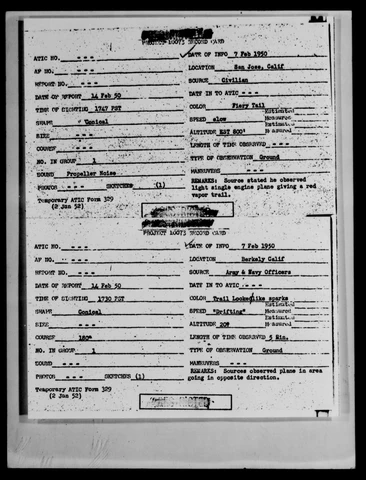 PROJECT 10073 RECORD CARD
ATIC NO. - - - DATE OF INFO 7 Feb 1950
AF NO. - - - LOCATION San Jose, Calif
REPORT NO. - - - SOURCE Civilian
DATE OF REPORT 14 Feb 50 DATE IN TO ATIC - - -
TIME OF SIGHTING 1747 PST COLOR Fiery Tail
SHAPE Conical SPEED slow Estimated Measured
SIZE - - - ALTITUDE EST 800' Estimated Measured
COURSE - - - LENGTH OF TIME OBSERVED - - -
NO. IN GROUP 1 TYPE OF OBSERVATION Ground
SOUND Propeller Noise MANEUVERS - - -
PHOTOS - - - SKETCHES (1) REMARKS: Source stated he observed
light single engine plane giving a red
vapor trail.
Temporary ATIC Form 329
(2 Jan 52)
PROJECT 10073 RECORD CARD
ATIC NO. - - - DATE OF INFO 7 Feb 1950
AF NO. - - - LOCATION Berkely Calif
REPORT NO. - - - SOURCE Army & Navy Officers
DATE OF REPORT 14 Feb 50 DATE IN TO ATIC - - -
TIME OF SIGHTING 1730 PST COLOR Trail Looked like sparks
SHAPE Conical SPEED "Drifting" Estimated Measured
SIZE - - - ALTITUDE 20° Estimated Measured
COURSE 180° LENGTH OF TIME OBSERVED 5 Min.
NO. IN GROUP 1 TYPE OF OBSERVATION Ground
SOUND - - - MANEUVERS - - -
PHOTOS - - - SKETCHES (1) REMARKS: Sources observed plane in area
going in opposite direction.
Temporary ATIC Form 329
(2 Jan 52)